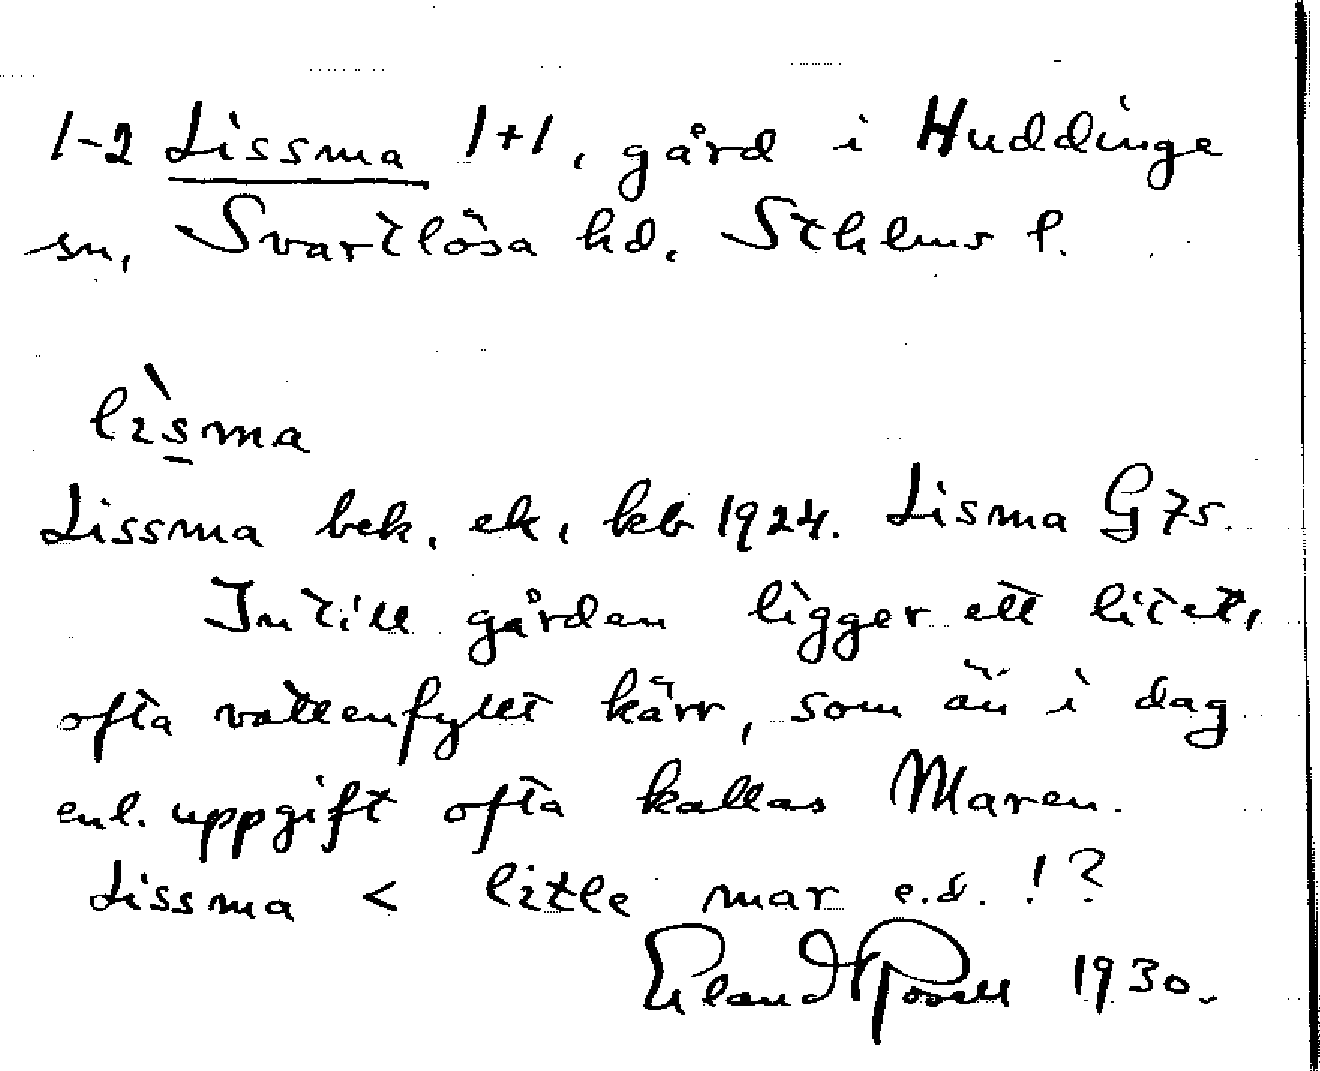 1-2 Lissma 1+1, gård i Huddinge
sn, Svartlösa hd, Sthlms l.
lìsma
Lissma bek, ek, kb 1924. Lisma G 75.
Intill gården ligger ett litet,
ofta vattenfyllt kärr, som än i dag
enl. uppgift ofta kallas Maren.
Lissma < litle mar e.d. !?
Erland Rosell 1930.